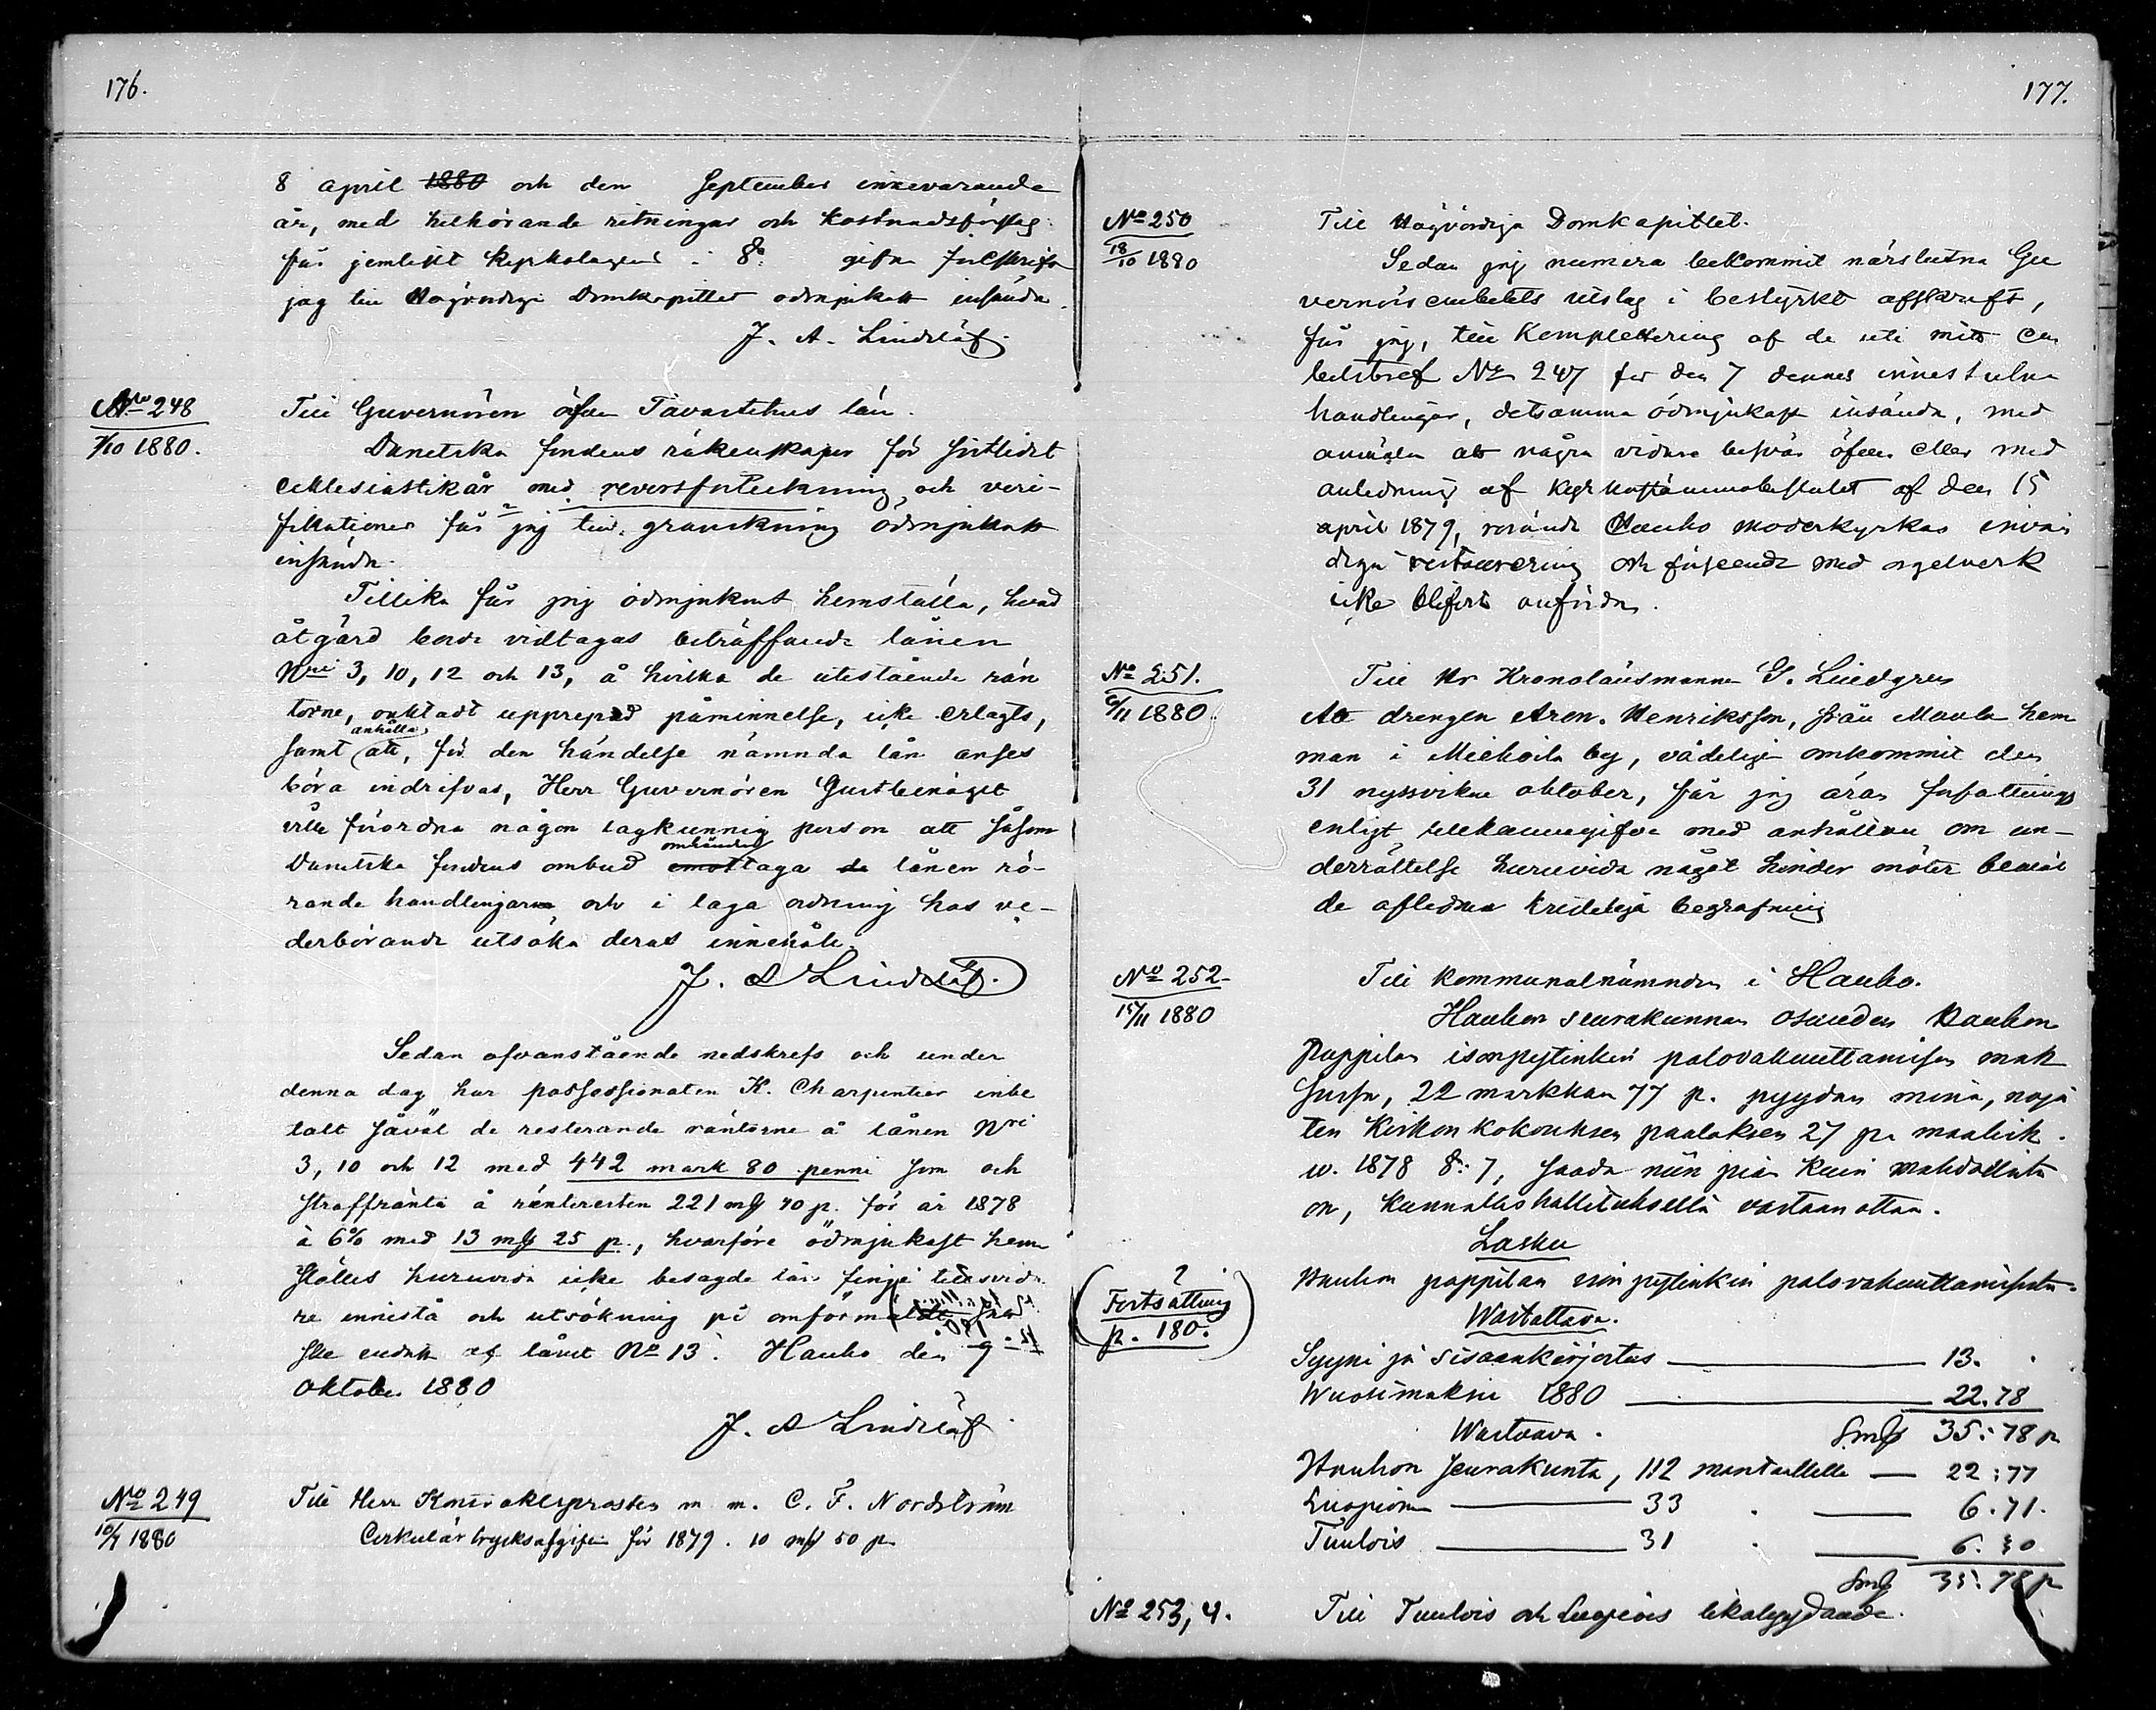 176.
8 april 1880 och den September innevarande
år, med tillhörande ritningar och kostnadsförslag
får jemlikt kyrkolagens i 8: gifna föreskrift
jag till Högvördiga Domkapitlet ödmjukast insända.
J. A. Lindelöf.
No 248
7/10 1880.
Till Guvernören öfver Tavastehus län.
Dunetska fondens räkenskaper för sistlidet
ecklesiastikår med reversförteckning och veri-
fikationer får jag till granskning ödmjukast
insända.
Tillika får jag ödmjukast hemställa, hvad
åtgärd borde vidtagas beträffande lånen
Nri 3, 10, 12 och 13, å hvilka de utestående rän
torne, oaktadt upprepad påminnelse, icke erlagts,
samt anhålla att, för den händelse nämnda lån anses
böra indrifvas, Herr Guvernören Gunstbenäget
ville förordna någon lagkunnig person att såsom
Dunetska fondens ombud emottaga omhändertaga de lånen rö-
rande handlingarna och i laga ordning hos ve-
derbörande utsöka deras innehåll.
J. A Lindelöf.
Sedan ofvanstående nedskrefs och under
denna dag har possessionaten K. Charpentier inbe
talt såväl de resterande räntorne å lånen Nri
3, 10 och 12 med 442 mark 80 penni som och
straffränta å ränteresten 221 mf 40 p. för år 1878
à 6% med 13 mf 25 p., hvarföre ödmjukast hem
ställes huruvida icke besagde lån finge tillsvida
re innestå och utsökning på omförmäldt
ske endast af lånet No 13. Hauho den 9
Oktober 1880
J. A Lindelöf
No 249
10/7 1880
Till Herr Kontraktsprosten m. m. C. F. Nordström
Cirkulär trycksafgifter för 1879. 10 mf 50 p
177.
No 250
18/10 1880
Till Högvördiga Domkapitlet.
Sedan jag numera bekommit närslutna Gu
vernörsembetets utslag i bestyrkt afskrift,
får jag, till Komplettering af de uti mitt em
betsbref No 247 för den 7 dennes inneslutna
handlingar, detsamma ödmjukast insända, med
anmälan att några vidare besvär öfver eller med
anledning af kyrkostämmobeslutet af den 15
april 1879, rörande Hauho moderkyrkas invän
diga restaurering och förseende med orgelverk
icke blifvit anförda.
No 251.
6/11 1880
Till Hr Kronolänsmannen G. Lindgren
Att drengen Aron Henriksson, från Maula hem
man i Miehoila by, vådeligen omkommit den
31 nyssvikne oktober, får jag äran författnings
enligt tillkännagifva med anhållan om un-
derrättelse huruvida något hinder möter bemäl
de aflednes kristeliga begrafning
No 252
15/11 1880
Till kommunalnämnden i Hauho.
Hauhon seurakunnan osuuden Hauhon
Pappilan isonpytinkin palovakuuttamisen mak
sussa, 22 markkaa 77 p. pyydän minä, nojaa
ten kirkonkokouksen päätöksen 27 p. maalisk.
w. 1878 §: 7, saada niin pian kuin mahdollista
on, kunnallishallitukselta vastaanottaa.
Lasku
Hauhon pappilan ison pytinkin palovakuuttamisesta.
Wastattava.
Syyni ja sisäänkirjoitus — 13.
Wuosimaksu 1880 — 22.78
Smf 35:78 p
Wastaava.
Hauhon seurakunta, 112 manttaalille — 22:77
Luopioinen — 33 — 6.71.
Tuulois — 31 — 6.30
Smf 35:78 p
?
(Fortsättning
p. 180.)
No 253, 4.
Till Tuulois och Luopiois likalydande.